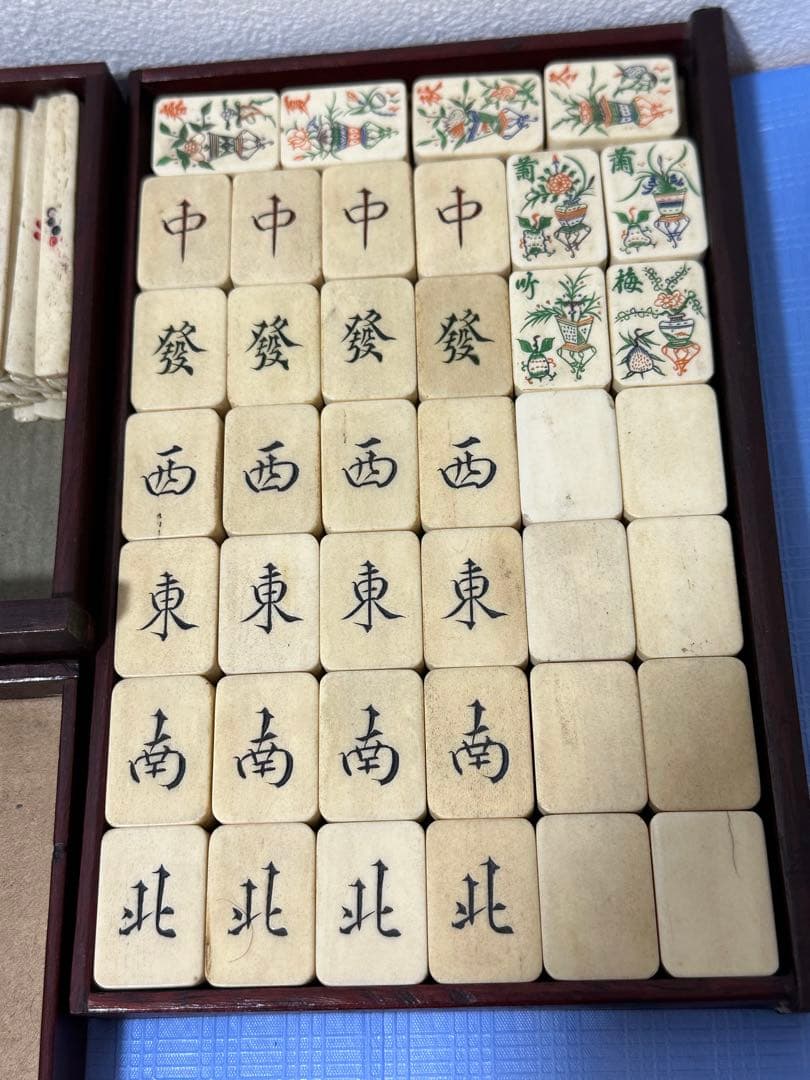 春 夏 秋 冬
中 中 中 中 菊 蘭
發 發 發 發 竹 梅
西 西 西 西
東 東 東 東
南 南 南 南
北 北 北 北